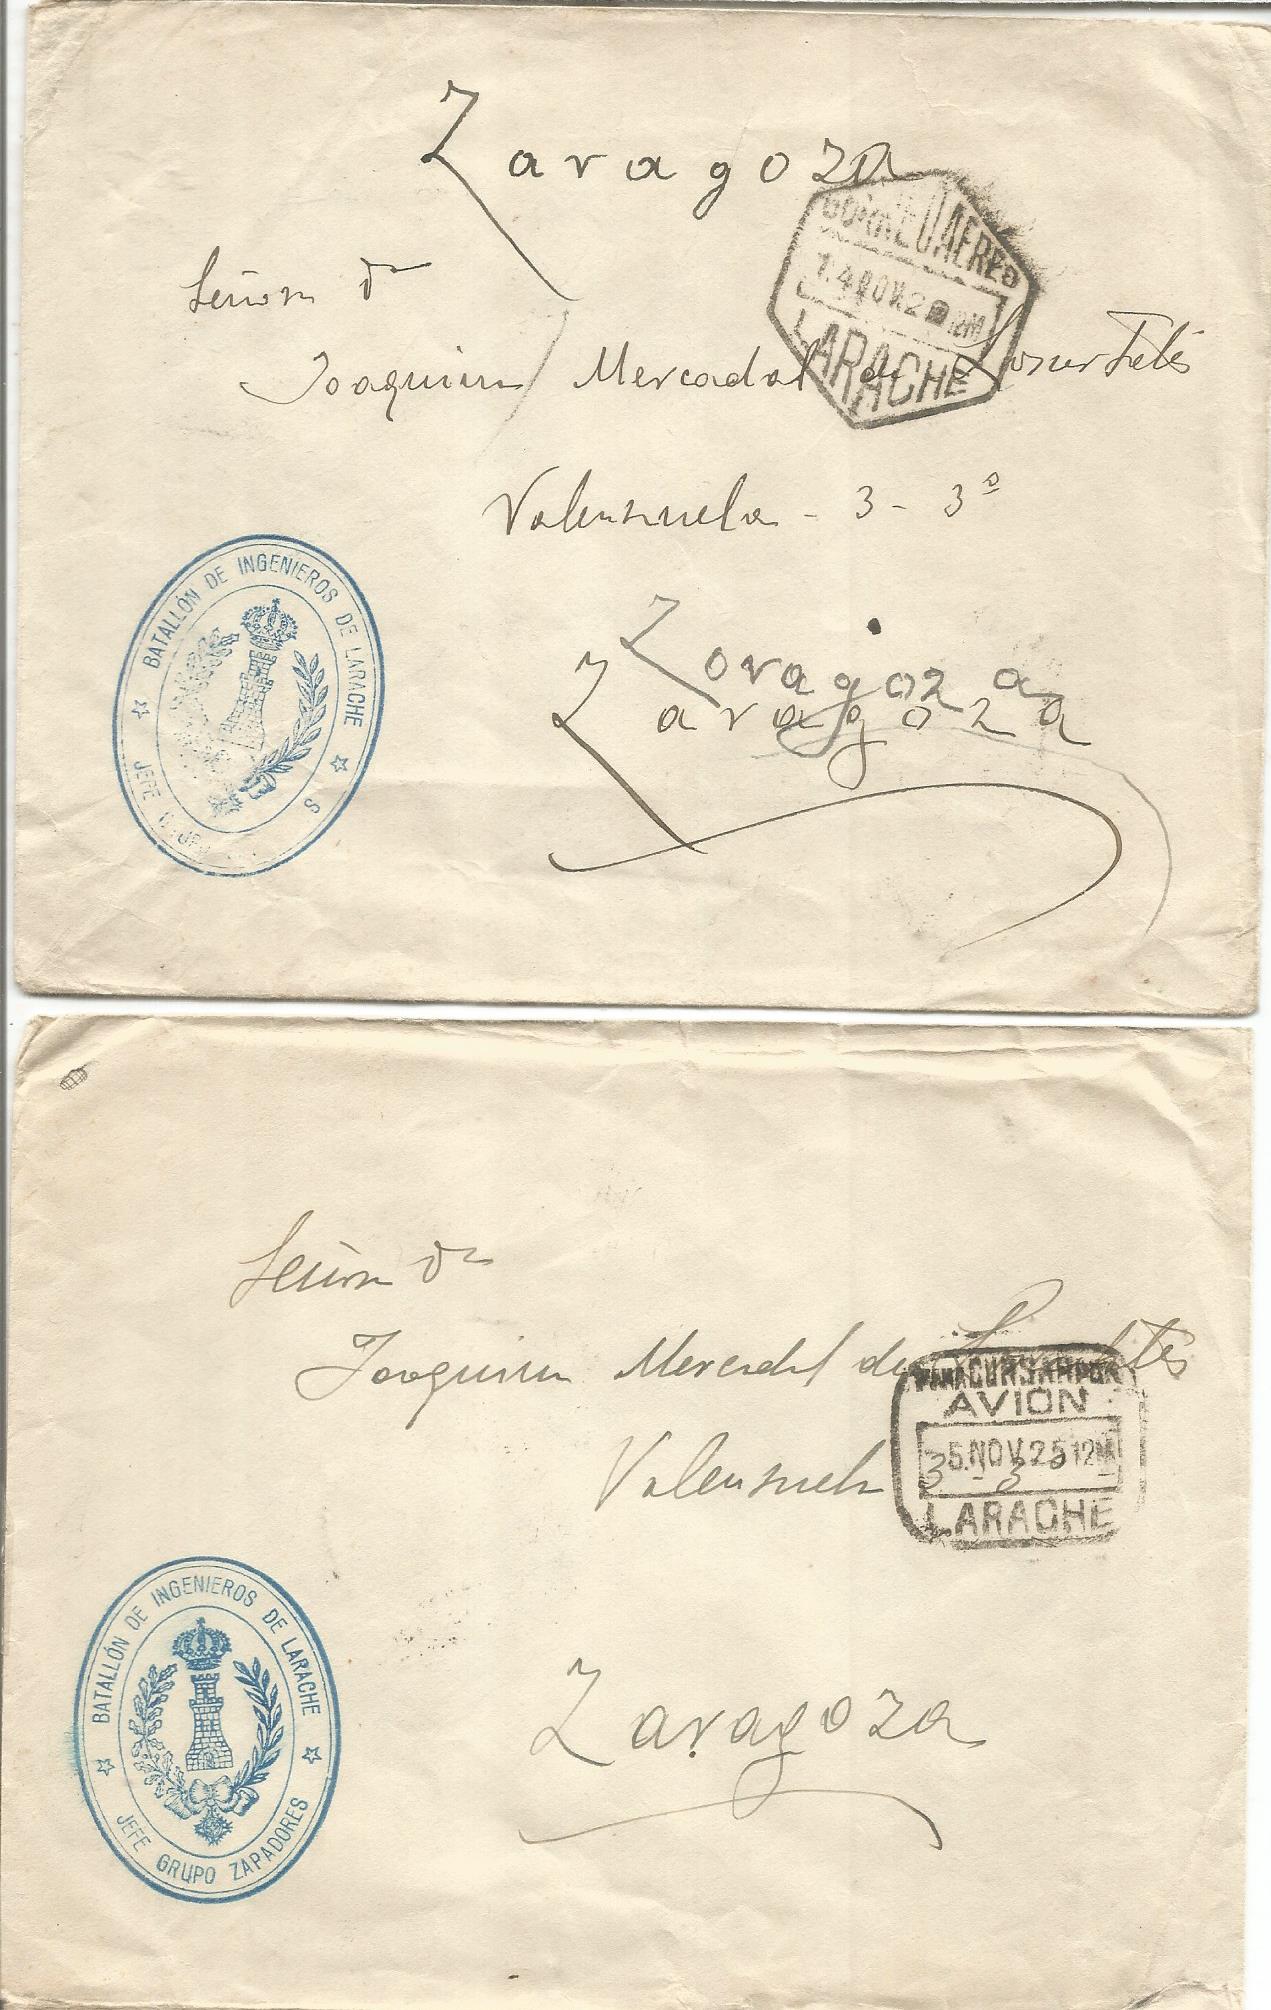 Zaragoza
CORREO AEREO
14 NOV 2
LARACHE
Señor Dn
Joaquin Mercadal de
Valenzuela - 3 - 3º
Zaragoza
Zaragoza
BATALLÓN DE INGENIEROS DE LARACHE
JEFE S
Señor Dn
Joaquin Mercadal de
Valenzuela
3 - 3º
AVION
5.NOV 25 12M
LARACHE
Zaragoza
BATALLÓN DE INGENIEROS DE LARACHE
JEFE GRUPO ZAPADORES